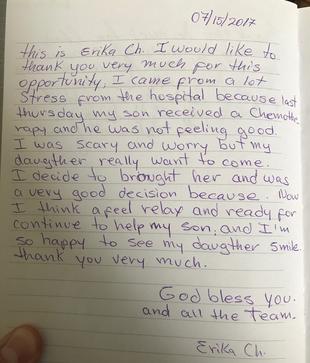 07/15/2017
this is Erika Ch. I would like to
thank you very much for this
opportunity, I came from a lot
stress from the hospital because last
thursday my son received a Chemothe
rapy and he was not feeling good.
I was scary and worry but my
daugther really want to come.
I decide to brought her and was
a very good decision because. Now
I think a feel relax and ready for
continue to help my son, and I'm
so happy to see my daugther smile.
thank you very much.
God bless you.
and all the team.
Erika Ch.